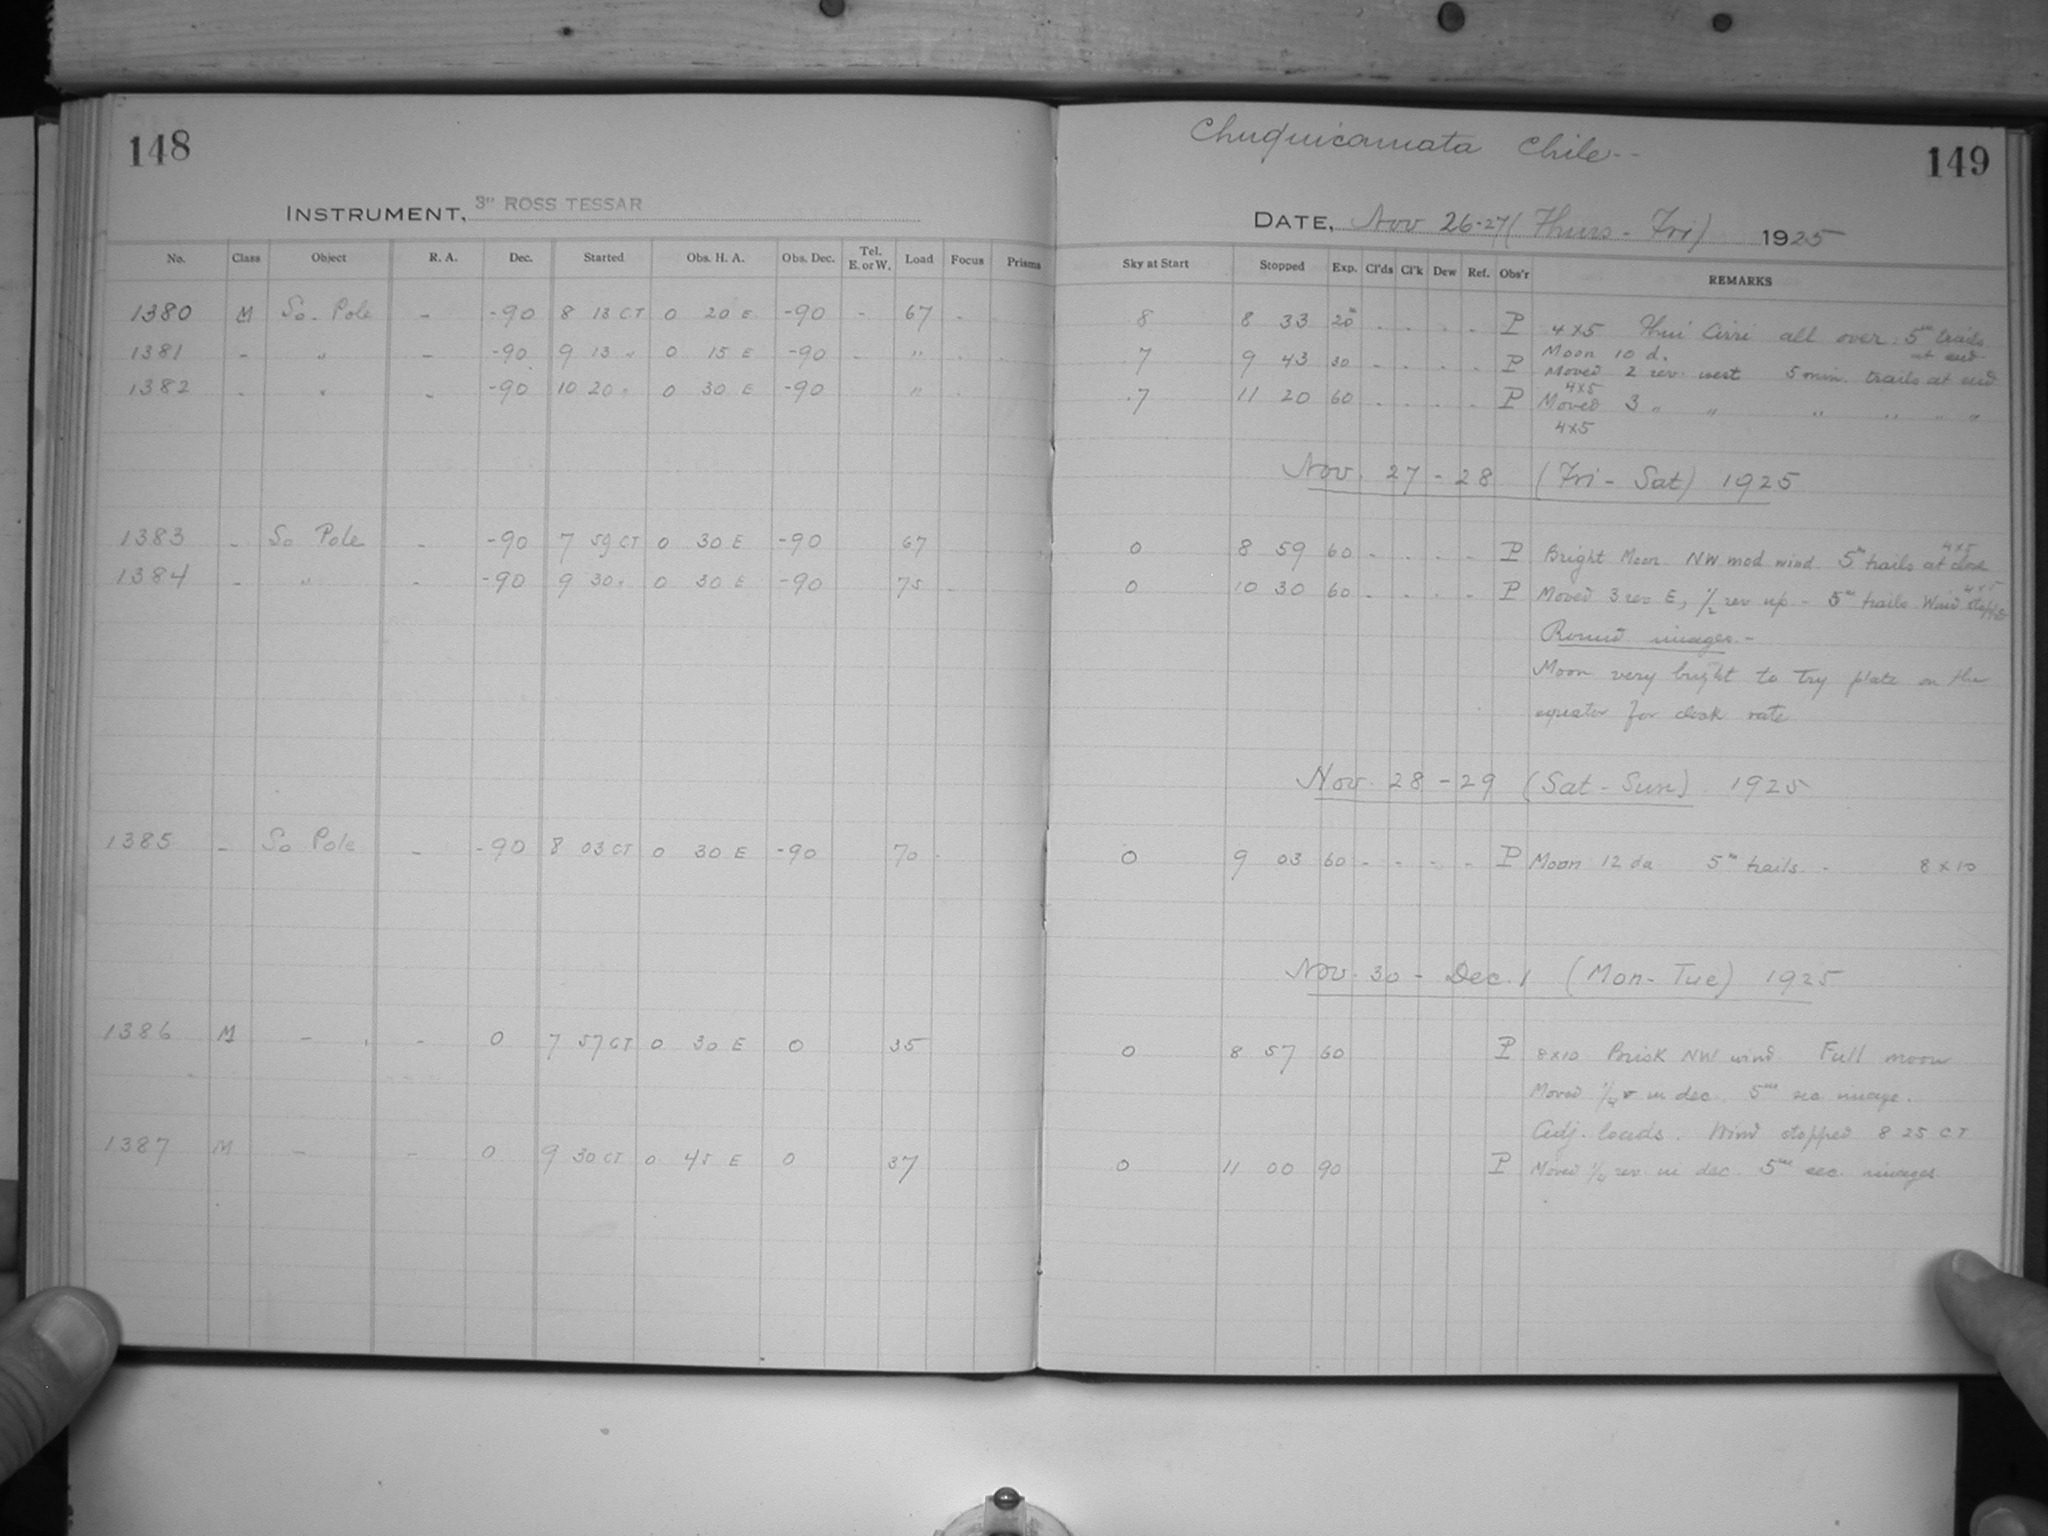 148
INSTRUMENT, 3" ROSS TESSAR
No. Class Object R. A. Dec. Started Obs. H. A. Obs. Dec. Tel. E. or W. Load Focus Prisms
1380 M So. Pole - -90 8 13 CT 0 20 E -90 - 67 -
1381 - " - -90 9 13 " 0 15 E -90 - " -
1382 - " - -90 10 20 " 0 30 E -90 " -
1383 - So Pole - -90 7 59 CT 0 30 E -90 67
1384 - " - -90 9 30 " 0 30 E -90 75 -
1385 - So Pole - -90 8 03 CT 0 30 E -90 70 -
1386 M - - 0 7 57 CT 0 30 E 0 35
1387 M - - 0 9 30 CT 0 45 E 0 37
Chuquicamata Chile--
149
DATE, Nov 26-27 (Thurs - Fri) 1925
Sky at Start Stopped Exp. Cl'ds Cl'k Dew Ref. Obs'r REMARKS
8 8 33 20m - - - - P 4x5 Thin Cirri all over. 5m trails at end
Moon 10 d.
7 9 43 30 - - - - P Moved 2 rev. west 5 min. trails at end
4x5
7 11 20 60 - - - - P Moved 3 " " " " " "
4x5
Nov. 27 - 28 (Fri - Sat) 1925
0 8 59 60 - - - - P Bright Moon NW mod wind 5m trails at close 4x5
0 10 30 60 - - - - P Moved 3 rev E, 1/2 rev up - 5m trails Wind stopped 4x5
Round images -
Moon very bright to try plate on the
equator for clock rate
Nov. 28 - 29 (Sat - Sun) 1925
0 9 03 60 - - - - P Moon 12 da 5m trails - 8 x 10
Nov. 30 - Dec. 1 (Mon - Tue) 1925
0 8 57 60 P 8x10 Brisk NW wind Full moon
Moved 1/4 r in dec. 5m sec image.
Adj. loads. Wind stopped 8 25 CT
0 11 00 90 P Moved 1/4 rev. in dec. 5m sec. images